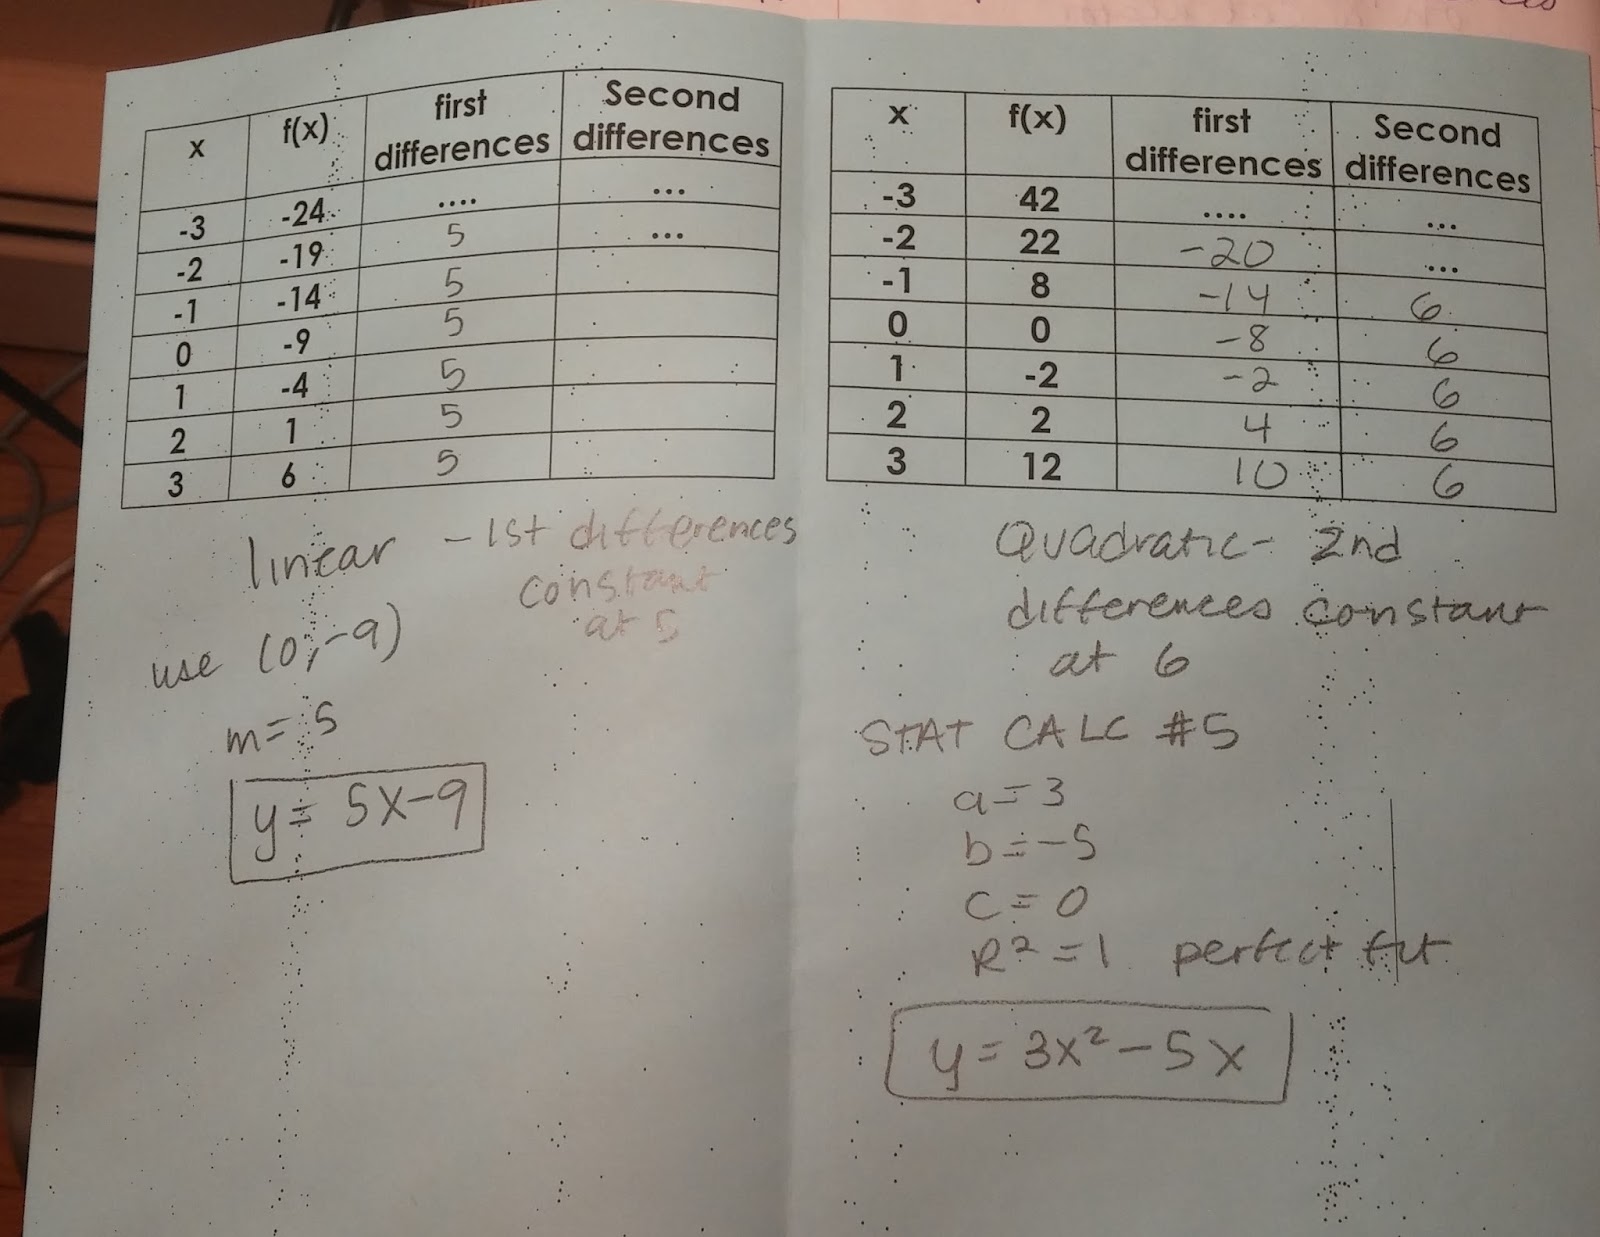 x f(x) first differences Second differences
-3 -24 .... ...
-2 -19 5 ...
-1 -14 5
0 -9 5
1 -4 5
2 1 5
3 6 5
linear - 1st differences
constant
at 5
use (0, -9)
m = 5
y = 5x-9
x f(x) first differences Second differences
-3 42 .... ...
-2 22 -20 ...
-1 8 -14 6
0 0 -8 6
1 -2 -2 6
2 2 4 6
3 12 10 6
Quadratic - 2nd
differences constant
at 6
STAT CALC #5
a = 3
b = -5
c = 0
R² = 1 perfect fit
y = 3x² - 5x